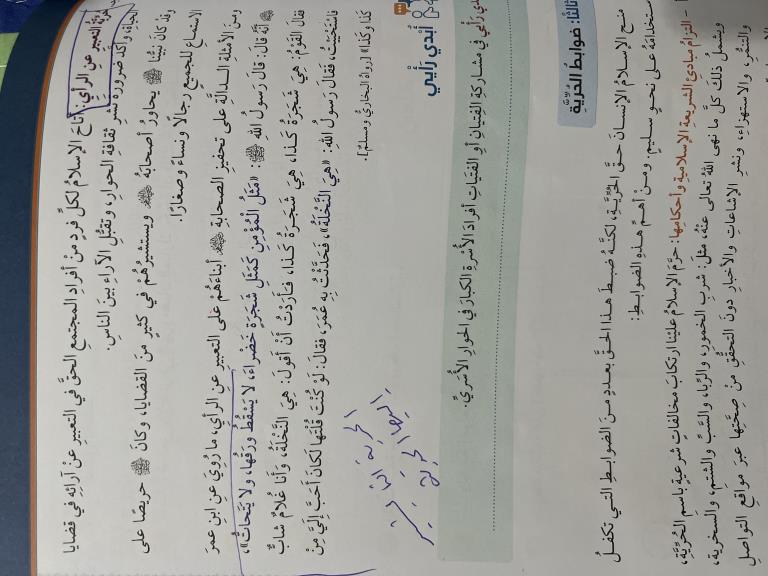 حريّة التعبير عن الرأي: أتاحَ الإسلامُ لكلِّ فردٍ منْ أفرادِ المجتمعِ الحقَّ في التعبيرِ عنْ آرائِه في قضايا
الحياة، وأكّدَ ضرورةَ نشرِ ثقافةِ الحوارِ، وتقبُّلِ الآراءِ بينَ الناسِ.
وقدْ كانَ نبيُّنا ﷺ يحاورُ أصحابَهُ ويستشيرُهُمْ في كثيرٍ منَ القضايا، وكانَ ﷺ حريصًا على
الاستماعِ للجميعِ رجالًا ونساءً وصغارًا.
ومنَ الأمثلةِ الدالّةِ على تحفيزِ الصحابةِ أبناءَهُمْ على التعبيرِ عنِ الرأيِ، ما رُوِيَ عنِ ابنِ عمرَ
أنَّهُ قالَ: قالَ رسولُ اللهِ ﷺ: «مَثَلُ المُؤْمِنِ كَمَثَلِ شَجَرَةٍ خَضْراءَ، لا يَسْقُطُ وَرَقُها، ولا يَتَحاتُّ»،
فقالَ القَوْمُ: هِيَ شَجَرَةُ كَذا، هِيَ شَجَرَةُ كَذا، فَأَرَدْتُ أَنْ أَقولَ: هِيَ النَّخْلَةُ، وَأَنا غُلامٌ شابٌّ
فاسْتَحْيَيْتُ، فَقالَ رَسولُ اللهِ: «هِيَ النَّخْلَةُ»، فَحَدَّثْتُ بِهِ عُمَرَ، فَقالَ: لَوْ كُنْتَ قُلْتَها لَكانَ أَحَبَّ إِلَيَّ مِنْ
كَذا وَكَذا» [رواهُ البخاريُّ ومسلمٌ].
أُبْدي رَأْيي
رَأْيي في مشاركةِ الفتيانِ أوِ الفتياتِ أفرادَ الأُسرةِ الكبارَ في الحوارِ الأُسَريِّ.
ثالثًا: ضوابطُ الحُرِّيَّةِ
منحَ الإسلامُ الإنسانَ حقَّ الحُرِّيَّةِ، لكنَّهُ ضبطَ هذا الحقَّ بعددٍ منَ الضوابطِ التي تكفلُ
استخدامَهُ على نحوٍ سليمٍ. ومنْ أهمِّ هذهِ الضوابطِ:
التزامُ مبادئِ الشريعةِ الإسلاميةِ وأحكامِها: حرَّمَ الإسلامُ علينا ارتكابَ مخالفاتٍ شرعيةٍ باسمِ الحُرِّيَّةِ،
ويشملُ ذلكَ كلَّ ما نهى اللهُ تعالى عنْهُ، مثلَ: شربِ الخمورِ، والرِّبا، والسبِّ والشتمِ، والسخريةِ،
والتنمُّرِ، والاستهزاءِ، ونشرِ الإشاعاتِ والأخبارِ دونَ التحقُّقِ منْ صحَّتِها عبرَ مواقعِ التواصلِ